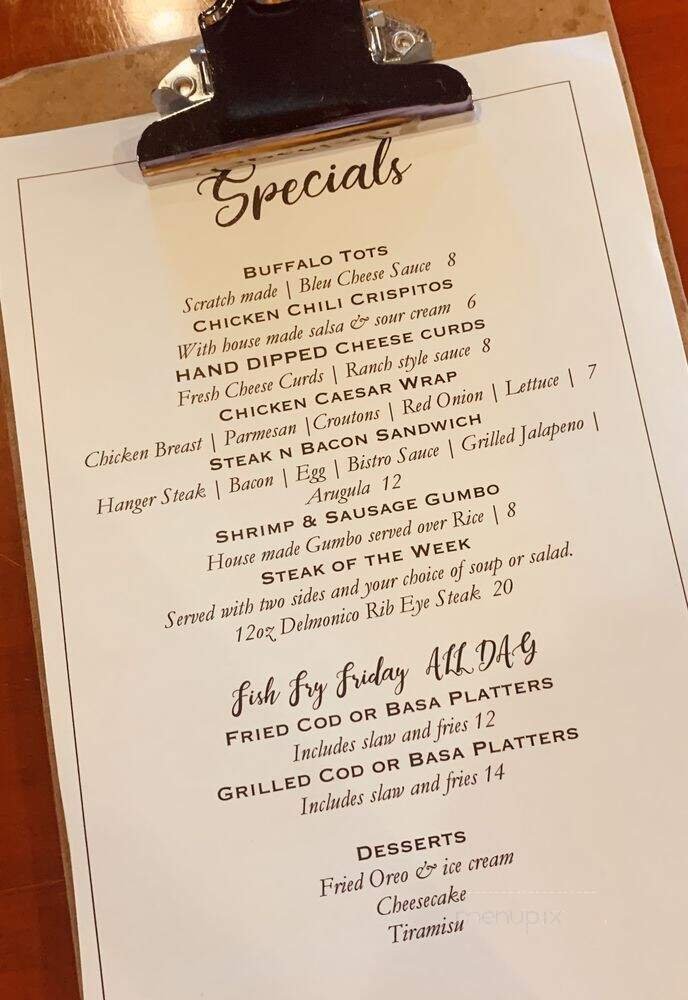 Specials
BUFFALO TOTS
Scratch made | Bleu Cheese Sauce 8
CHICKEN CHILI CRISPITOS
With house made salsa & sour cream 6
HAND DIPPED CHEESE CURDS
Fresh Cheese Curds | Ranch style sauce 8
CHICKEN CAESAR WRAP
Chicken Breast | Parmesan |Croutons | Red Onion | Lettuce | 7
STEAK N BACON SANDWICH
Hanger Steak | Bacon | Egg | Bistro Sauce | Grilled Jalapeno |
Arugula 12
SHRIMP & SAUSAGE GUMBO
House made Gumbo served over Rice | 8
STEAK OF THE WEEK
Served with two sides and your choice of soup or salad.
12oz Delmonico Rib Eye Steak 20
Fish Fry Friday ALL DAY
FRIED COD OR BASA PLATTERS
Includes slaw and fries 12
GRILLED COD OR BASA PLATTERS
Includes slaw and fries 14
DESSERTS
Fried Oreo & ice cream
Cheesecake
Tiramisu
menupix